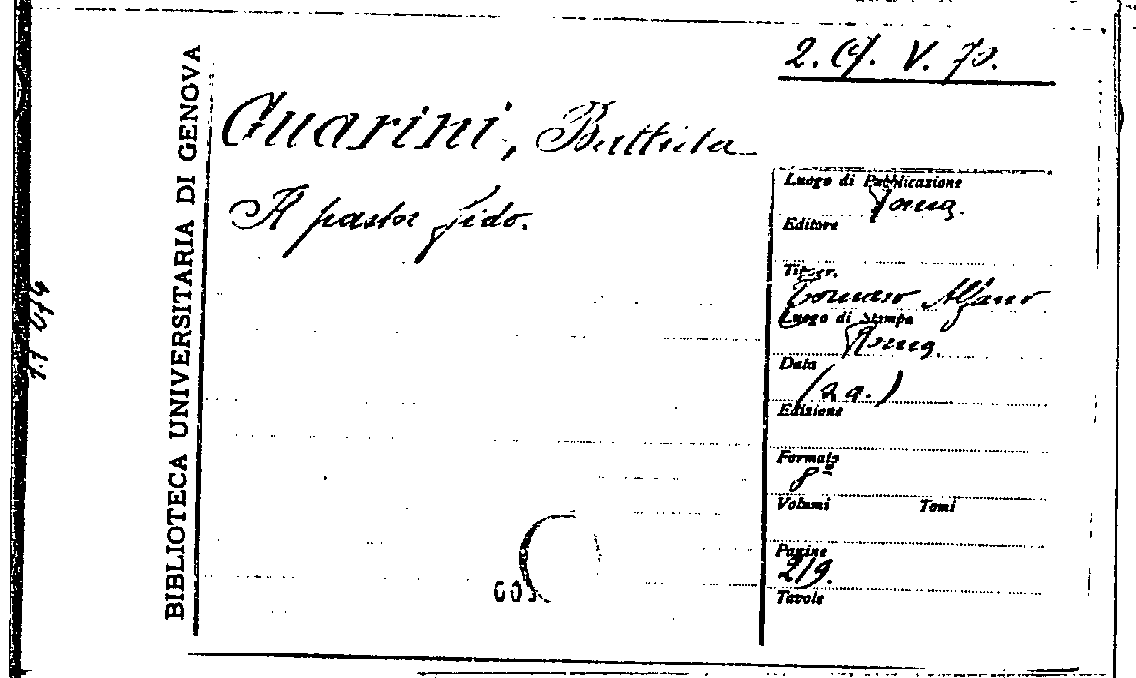 BIBLIOTECA UNIVERSITARIA DI GENOVA
2. V. 70.
Guarini, Battista
Il pastor fido.
Luogo di Pubblicazione
Roma.
Editore
Tipogr.
Tomaso Alfano
Luogo di Stampa
Roma.
Data
Edizione
Formato
8º
Volumi Tomi
Pagine
219.
Tavole